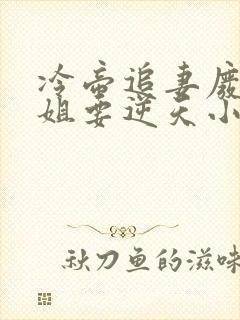 冷帝追妻廢
姐要逆天小
秋刀鱼的滋味